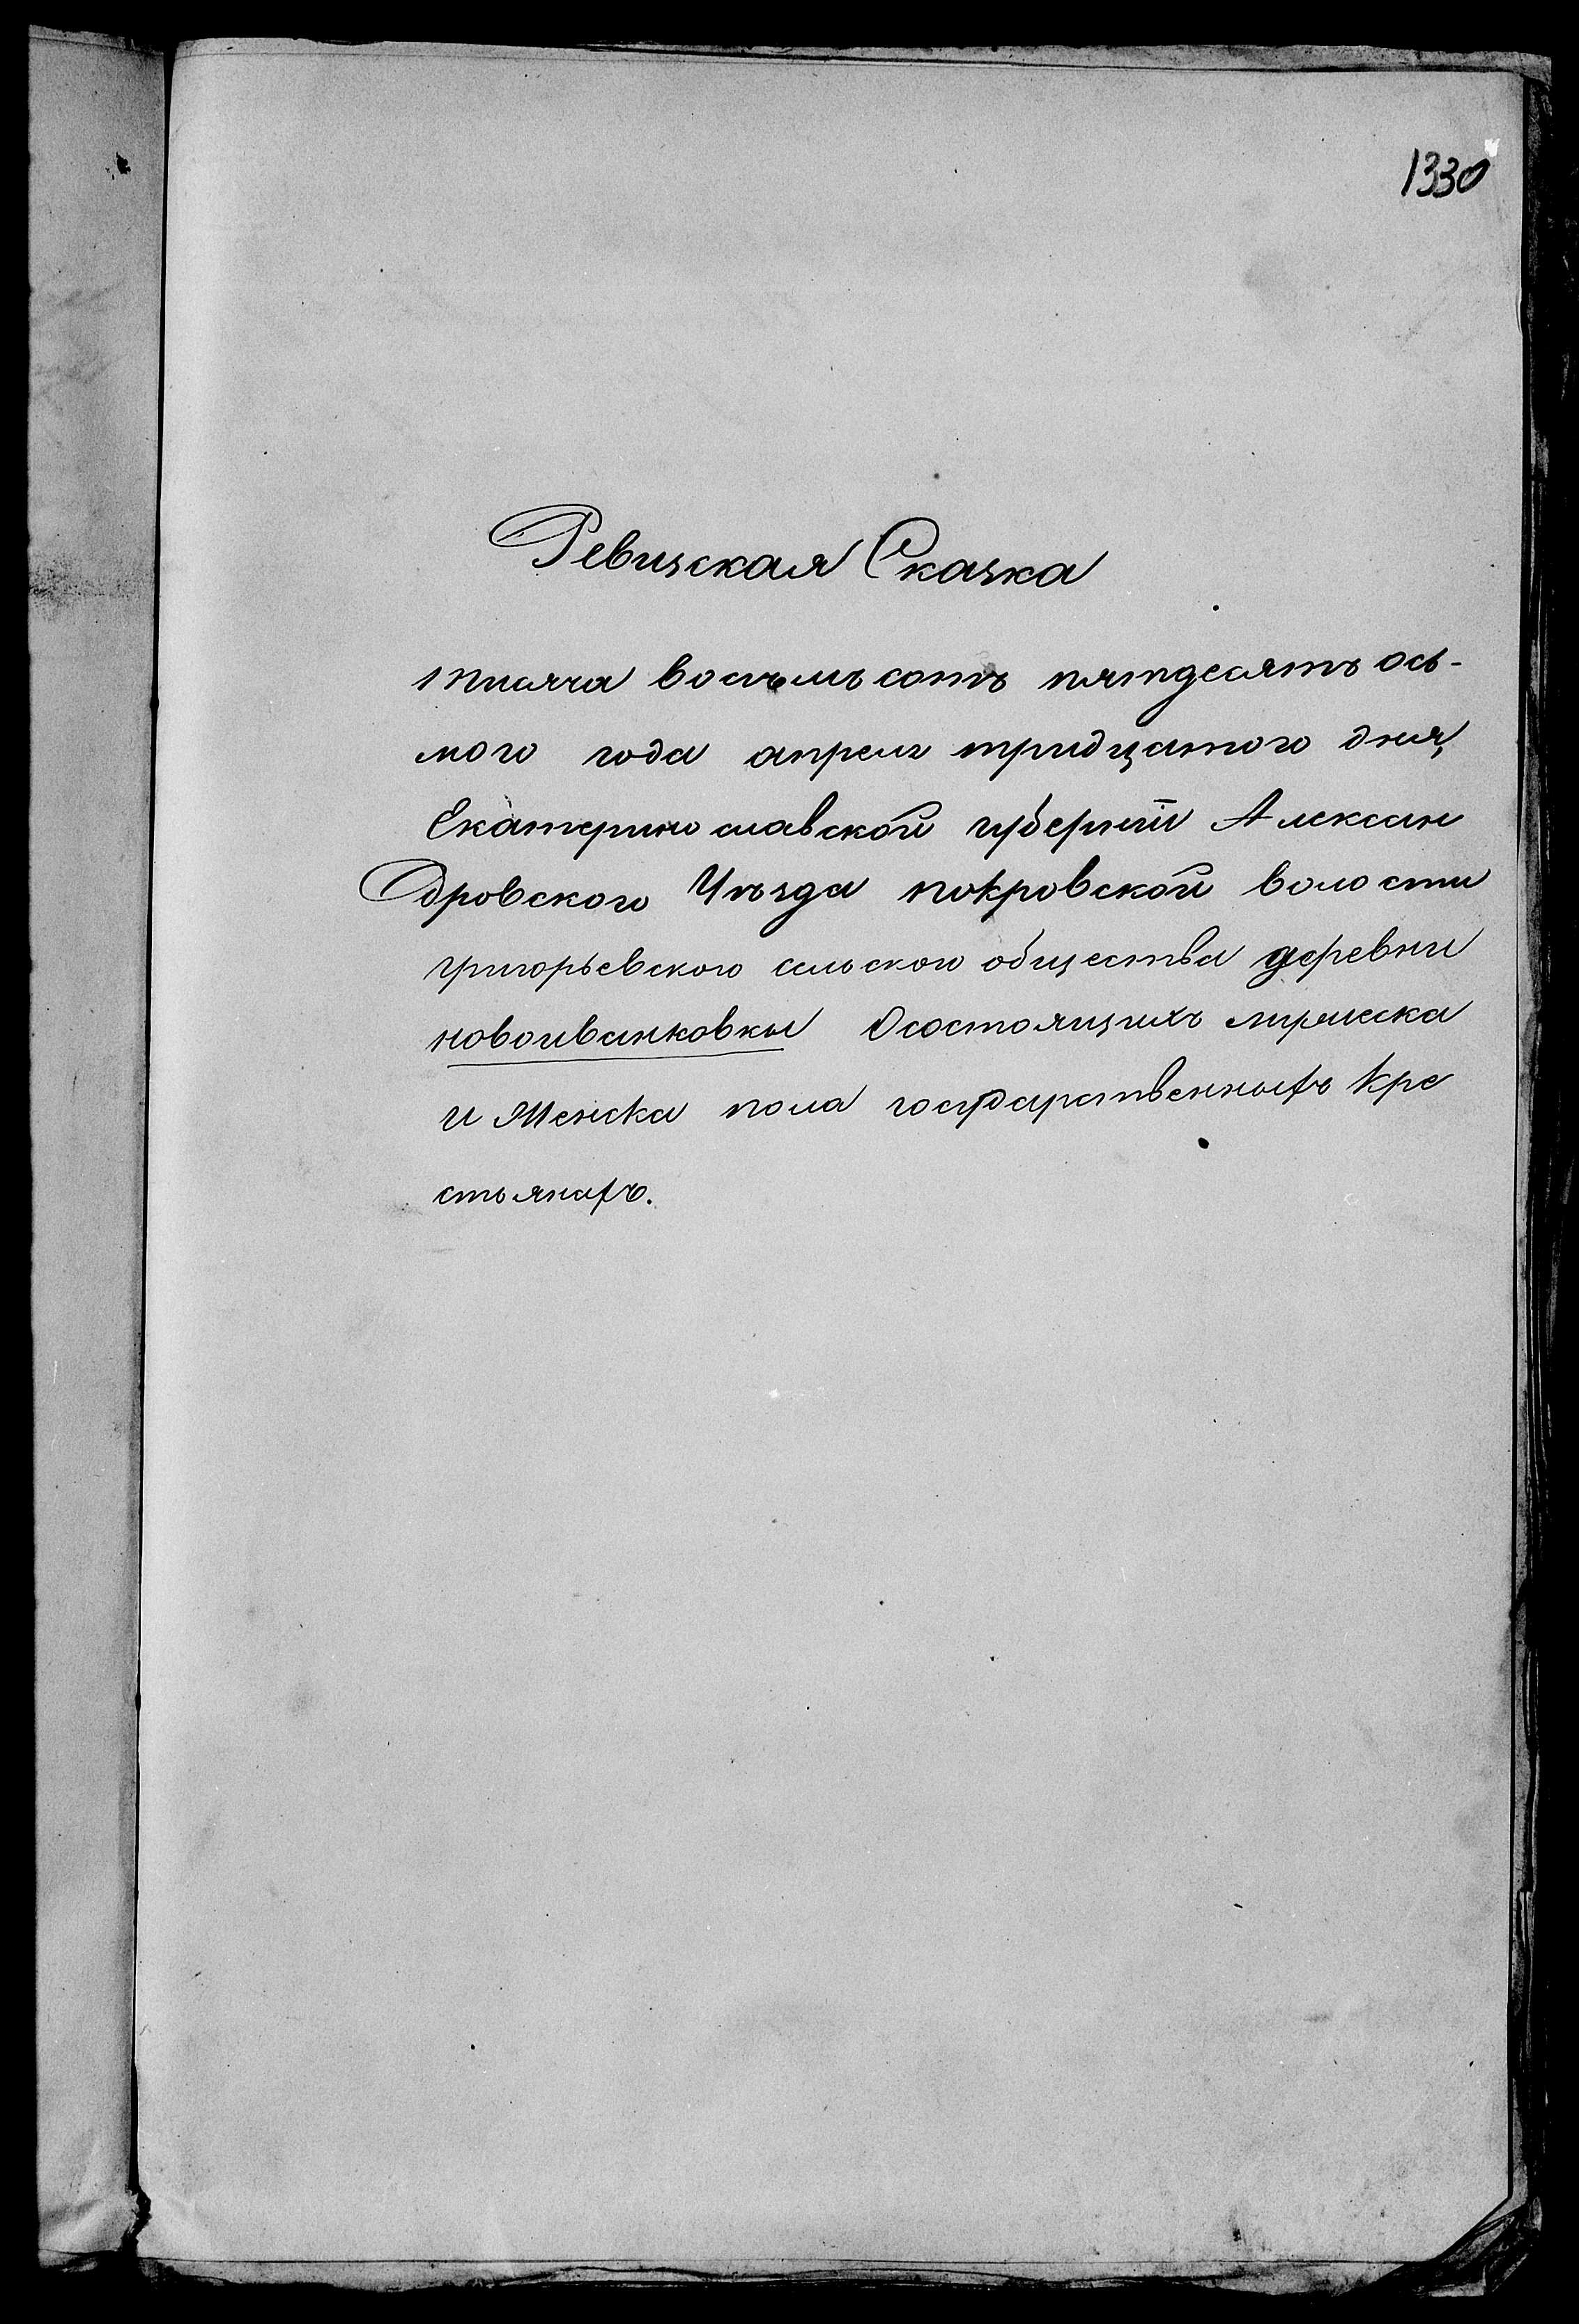 1330
Ревизская Сказка
тисяча восъмь сотъ пятдесятъ ось-
мого года апреля тридцатого дня,
Екатеринославской губернїи Алексан
дровского Уѣзда покровской волости
григорьевского сельского общества деревни
новоиванковки Осостоящихъ муржеска
и Женска пола государственныхъ Кре
стьянахъ.